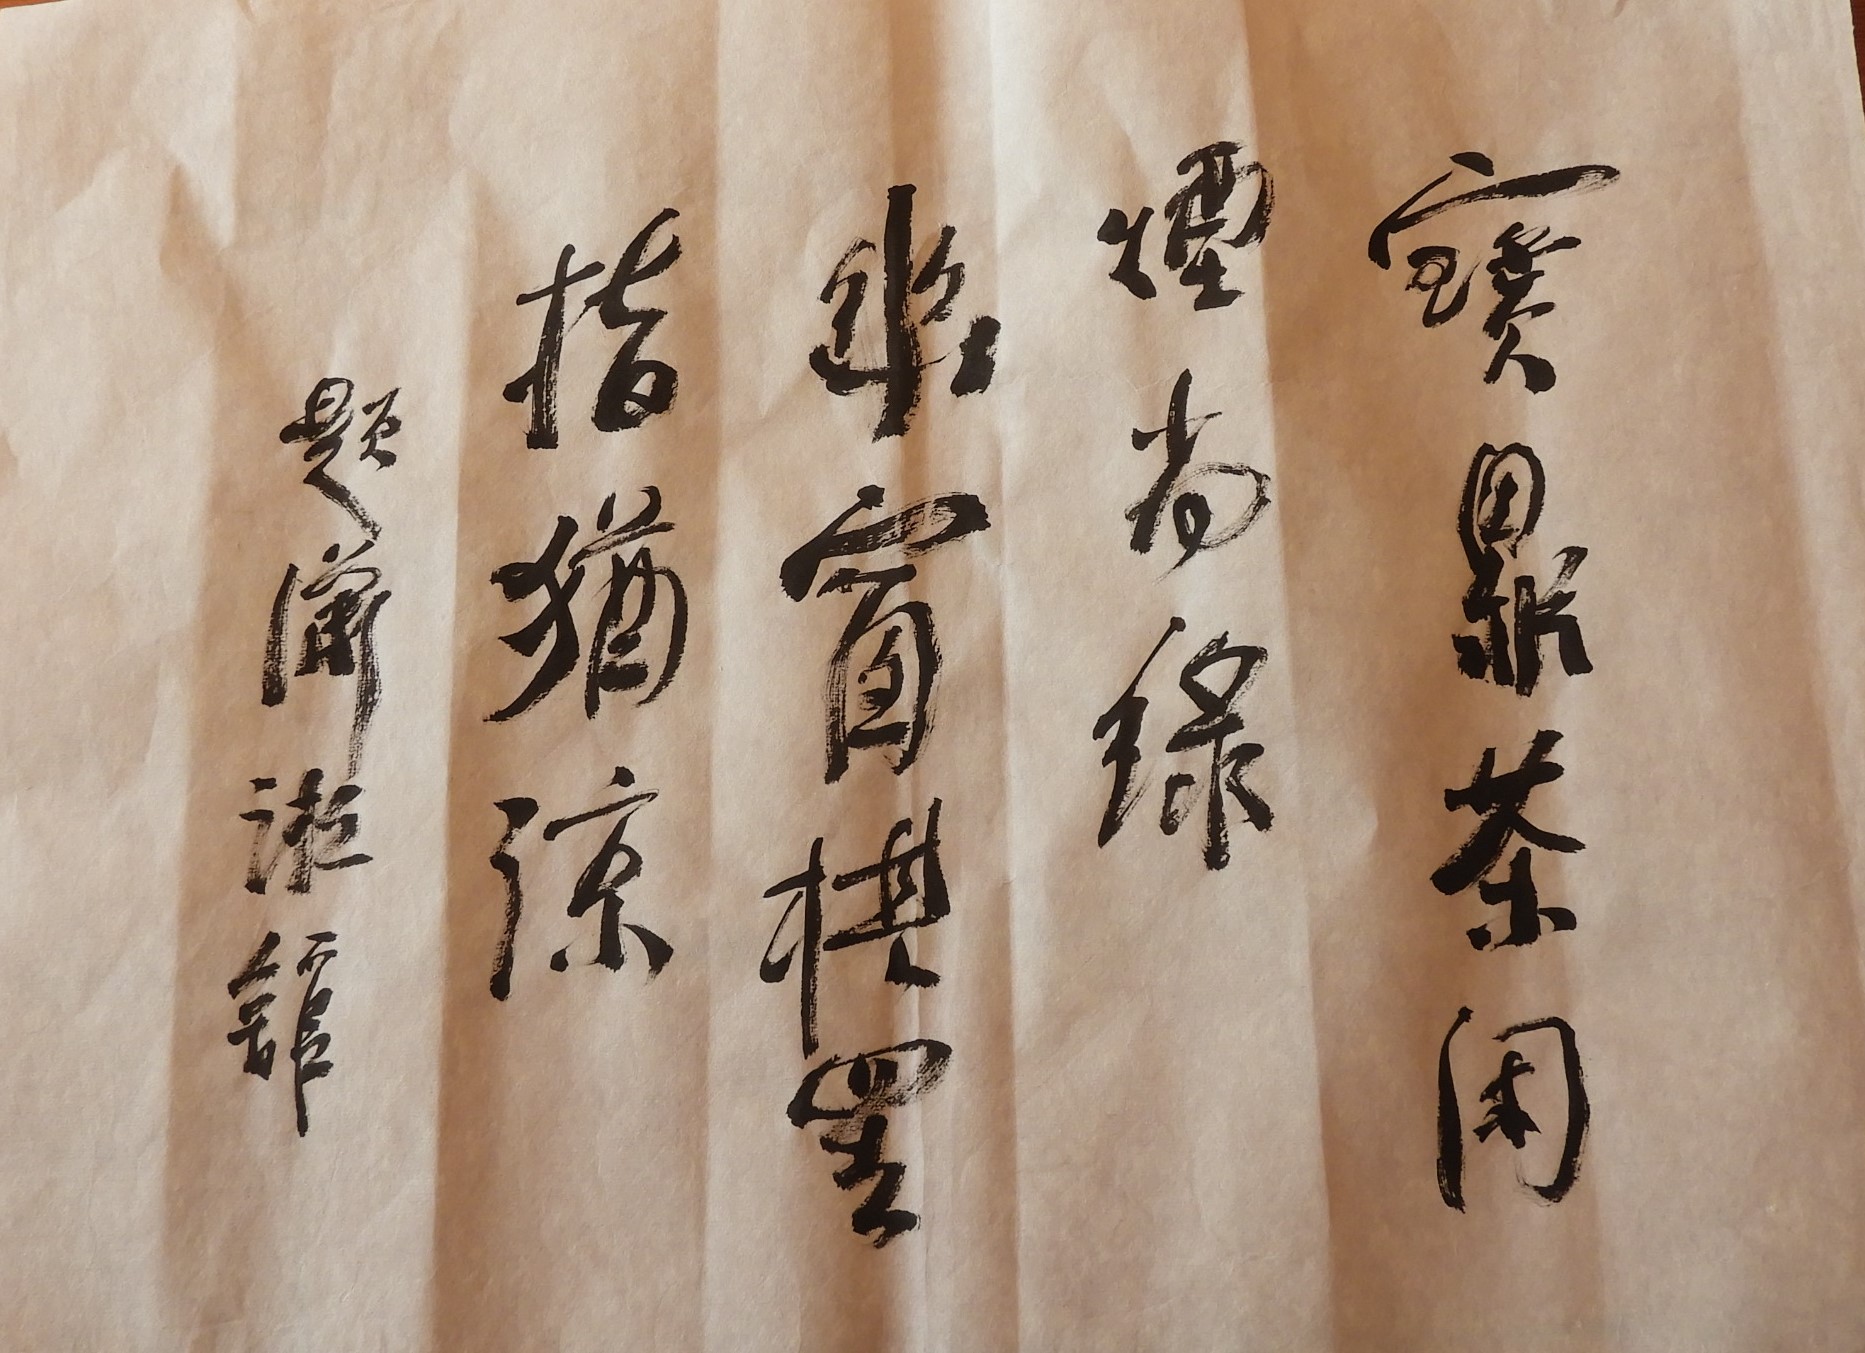 寶鼎茶闲
煙尚綠
幽窗棋罢
指猶涼
题瀟湘館